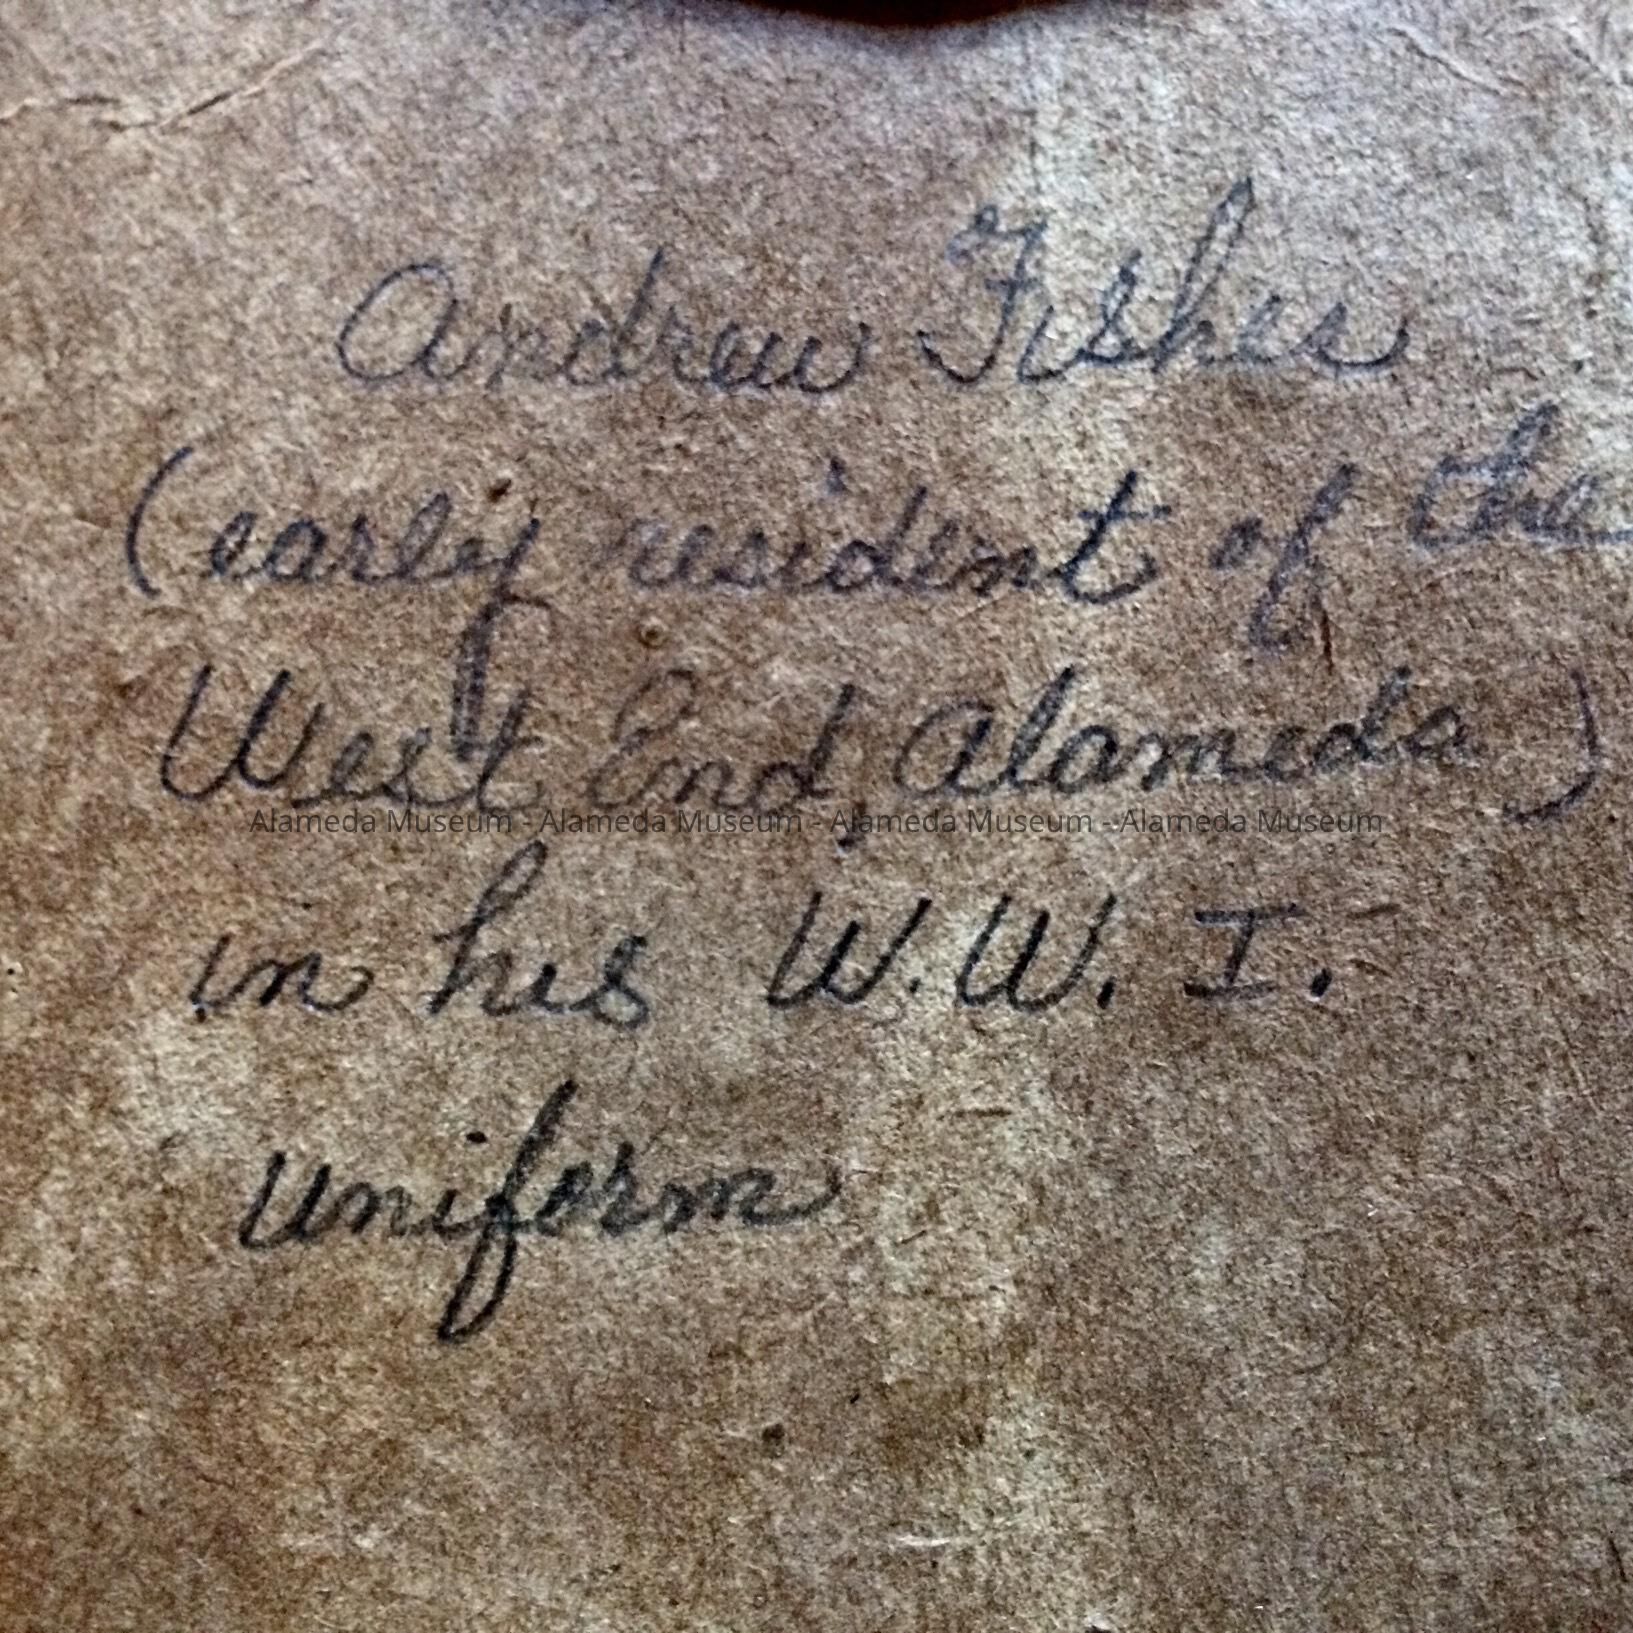 Andrew Fisher
(early resident of the
West End, Alameda)
Alameda Museum - Alameda Museum - Alameda Museum - Alameda Museum
in his W.W. I.
uniform